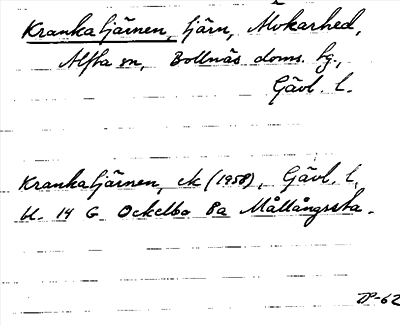 Krankatjärnen, tjärn, Älvkarhed,
Alfta sn, Bollnäs doms. hg.,
Gävl. l.
Krankatjärnen, ek (1958), Gävl. l,
bl. 14 G Ockelbo 8a Mållångssta.
DP-62